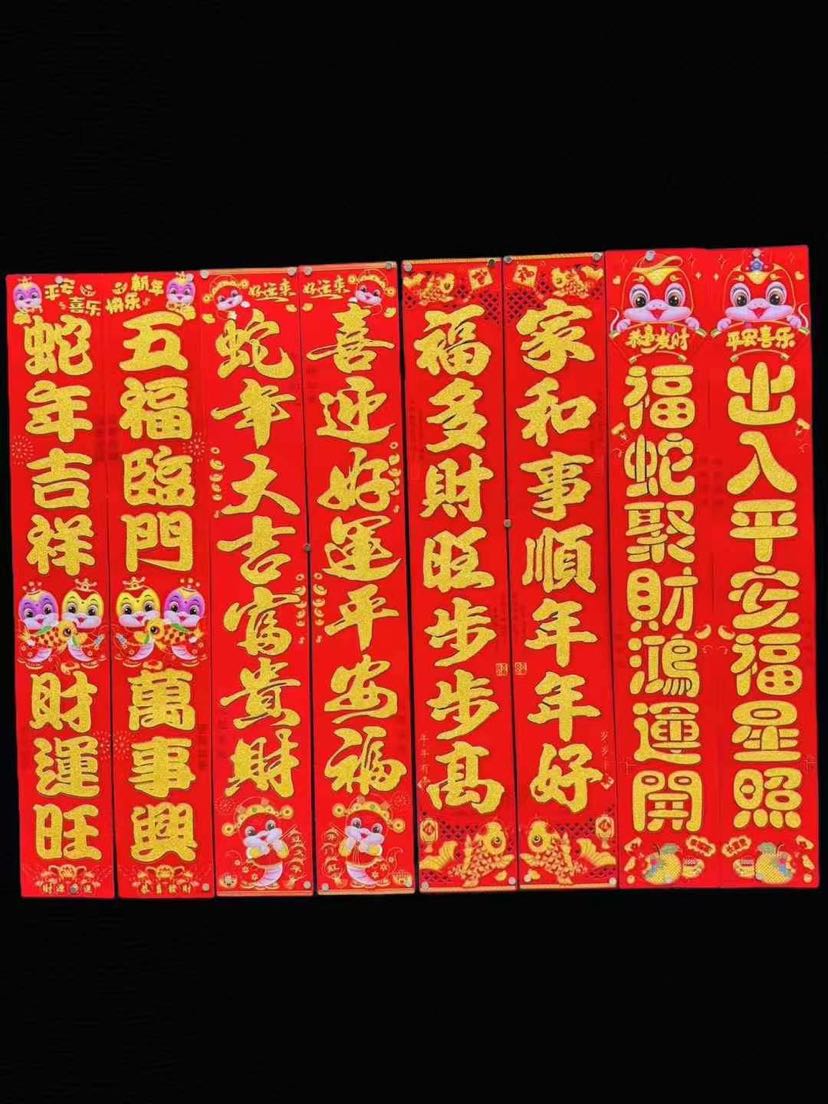 平安喜乐
出入平安福星照
恭喜发财
福蛇聚財鴻運開
家和事順年年好
岁岁
福多財旺步步高
年年有
好运来
喜迎好運平安福
好运来
蛇年大吉富貴財
新年
快乐
五福臨門
萬事興
恭喜發財
平安
喜乐
蛇年吉祥
財運旺